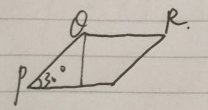 Q R.
P 30°